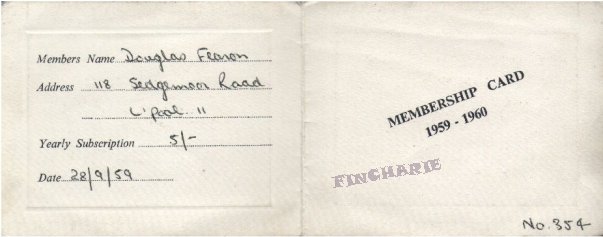 Members Name Douglas Fearon
Address 118 Sedgemoor Road
L'pool 11
Yearly Subscription 5/-
Date 28/9/59
MEMBERSHIP CARD
1959 - 1960
FINCHARIE
No. 354